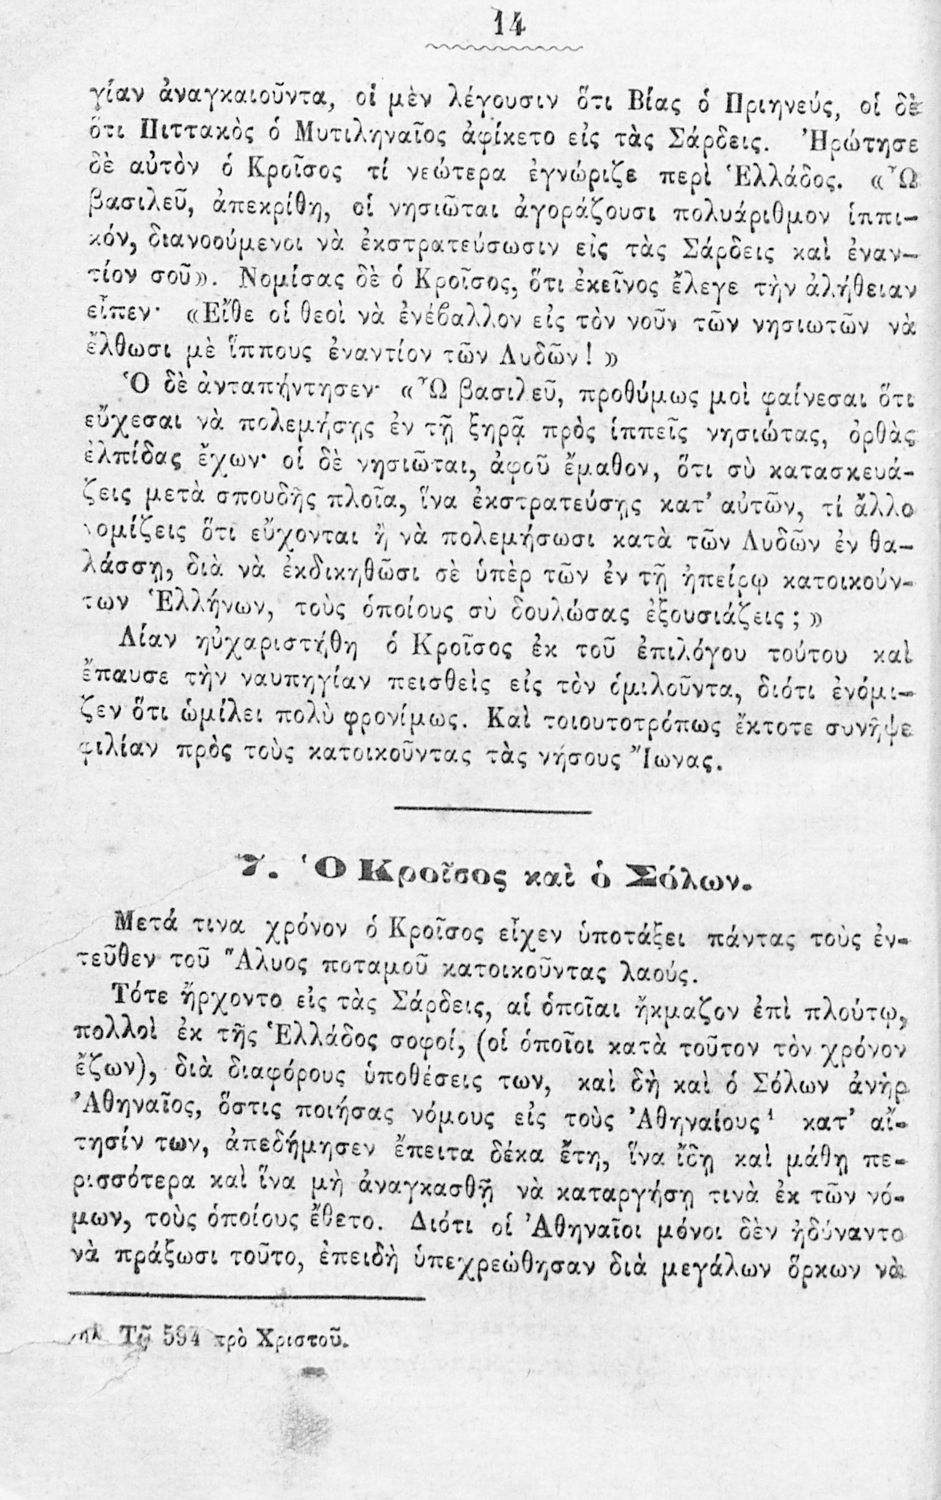 14
γίαν ἀναγκαιοῦντα, οἱ μὲν λέγουσιν ὅτι Βίας ὁ Πριηνεύς, οἱ δὲ
ὅτι Πιττακὸς ὁ Μυτιληναῖος ἀφίκετο εἰς τὰς Σάρδεις. Ἠρώτησε
δὲ αὐτὸν ὁ Κροῖσος τί νεώτερα ἐγνώριζε περὶ Ἑλλάδος. «Ὦ
βασιλεῦ, ἀπεκρίθη, οἱ νησιῶται ἀγοράζουσι πολυάριθμον ἱππι-
κόν, διανοούμενοι νὰ ἐκστρατεύσωσιν εἰς τὰς Σάρδεις καὶ ἐναν-
τίον σοῦ». Νομίσας δὲ ὁ Κροῖσος, ὅτι ἐκεῖνος ἔλεγε τὴν ἀλήθειαν
εἶπεν· «Εἴθε οἱ θεοὶ νὰ ἐνέβαλλον εἰς τὸν νοῦν τῶν νησιωτῶν νὰ
ἔλθωσι μὲ ἵππους ἐναντίον τῶν Λυδῶν! »
Ὁ δὲ ἀνταπήντησεν· «Ὦ βασιλεῦ, προθύμως μοὶ φαίνεσαι ὅτι
εὔχεσαι νὰ πολεμήσῃς ἐν τῇ ξηρᾷ πρὸς ἱππεῖς νησιώτας, ὀρθὰς
ἐλπίδας ἔχων· οἱ δὲ νησιῶται, ἀφοῦ ἔμαθον, ὅτι σὺ κατασκευά-
ζεις μετὰ σπουδῆς πλοῖα, ἵνα ἐκστρατεύσῃς κατ' αὐτῶν, τί ἄλλο
νομίζεις ὅτι εὔχονται ἢ νὰ πολεμήσωσι κατὰ τῶν Λυδῶν ἐν θα-
λάσσῃ, διὰ νὰ ἐκδικηθῶσι σὲ ὑπὲρ τῶν ἐν τῇ ἠπείρῳ κατοικούν-
των Ἑλλήνων, τοὺς ὁποίους σὺ δουλώσας ἐξουσιάζεις ; »
Λίαν ηὐχαριστήθη ὁ Κροῖσος ἐκ τοῦ ἐπιλόγου τούτου καὶ
ἔπαυσε τὴν ναυπηγίαν πεισθεὶς εἰς τὸν ὁμιλοῦντα, διότι ἐνόμι-
ζεν ὅτι ὡμίλει πολὺ φρονίμως. Καὶ τοιουτοτρόπως ἔκτοτε συνῆψε
φιλίαν πρὸς τοὺς κατοικοῦντας τὰς νήσους Ἴωνας.
7. Ὁ Κροῖσος καὶ ὁ Σόλων.
Μετά τινα χρόνον ὁ Κροῖσος εἶχεν ὑποτάξει πάντας τοὺς ἐν-
τεῦθεν τοῦ Ἅλυος ποταμοῦ κατοικοῦντας λαούς.
Τότε ἤρχοντο εἰς τὰς Σάρδεις, αἱ ὁποῖαι ἤκμαζον ἐπὶ πλούτῳ,
πολλοὶ ἐκ τῆς Ἑλλάδος σοφοί, (οἱ ὁποῖοι κατὰ τοῦτον τὸν χρόνον
ἔζων), διὰ διαφόρους ὑποθέσεις των, καὶ δὴ καὶ ὁ Σόλων ἀνὴρ
Ἀθηναῖος, ὅστις ποιήσας νόμους εἰς τοὺς Ἀθηναίους¹ κατ' αἴ-
τησίν των, ἀπεδήμησεν ἔπειτα δέκα ἔτη, ἵνα ἴδῃ καὶ μάθῃ πε-
ρισσότερα καὶ ἵνα μὴ ἀναγκασθῇ νὰ καταργήσῃ τινὰ ἐκ τῶν νό-
μων, τοὺς ὁποίους ἔθετο. Διότι οἱ Ἀθηναῖοι μόνοι δὲν ἠδύναντο
νὰ πράξωσι τοῦτο, ἐπειδὴ ὑπεχρεώθησαν διὰ μεγάλων ὅρκων νὰ
Τῷ 594 πρὸ Χριστοῦ.